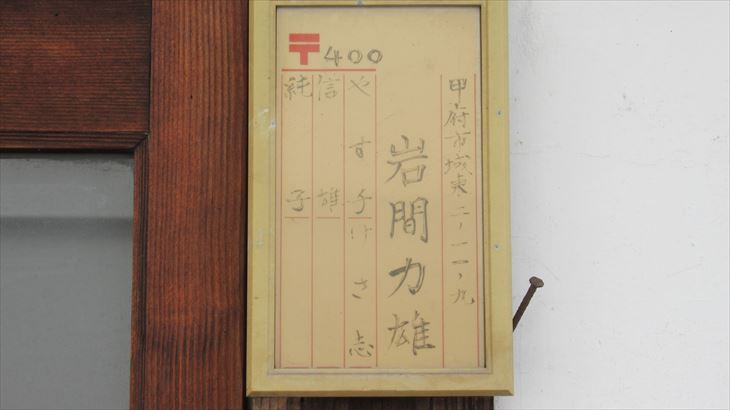 〒400
甲府市城東二ノ一一ノ九
岩間力雄
やす子
けさ志
信雄
純子